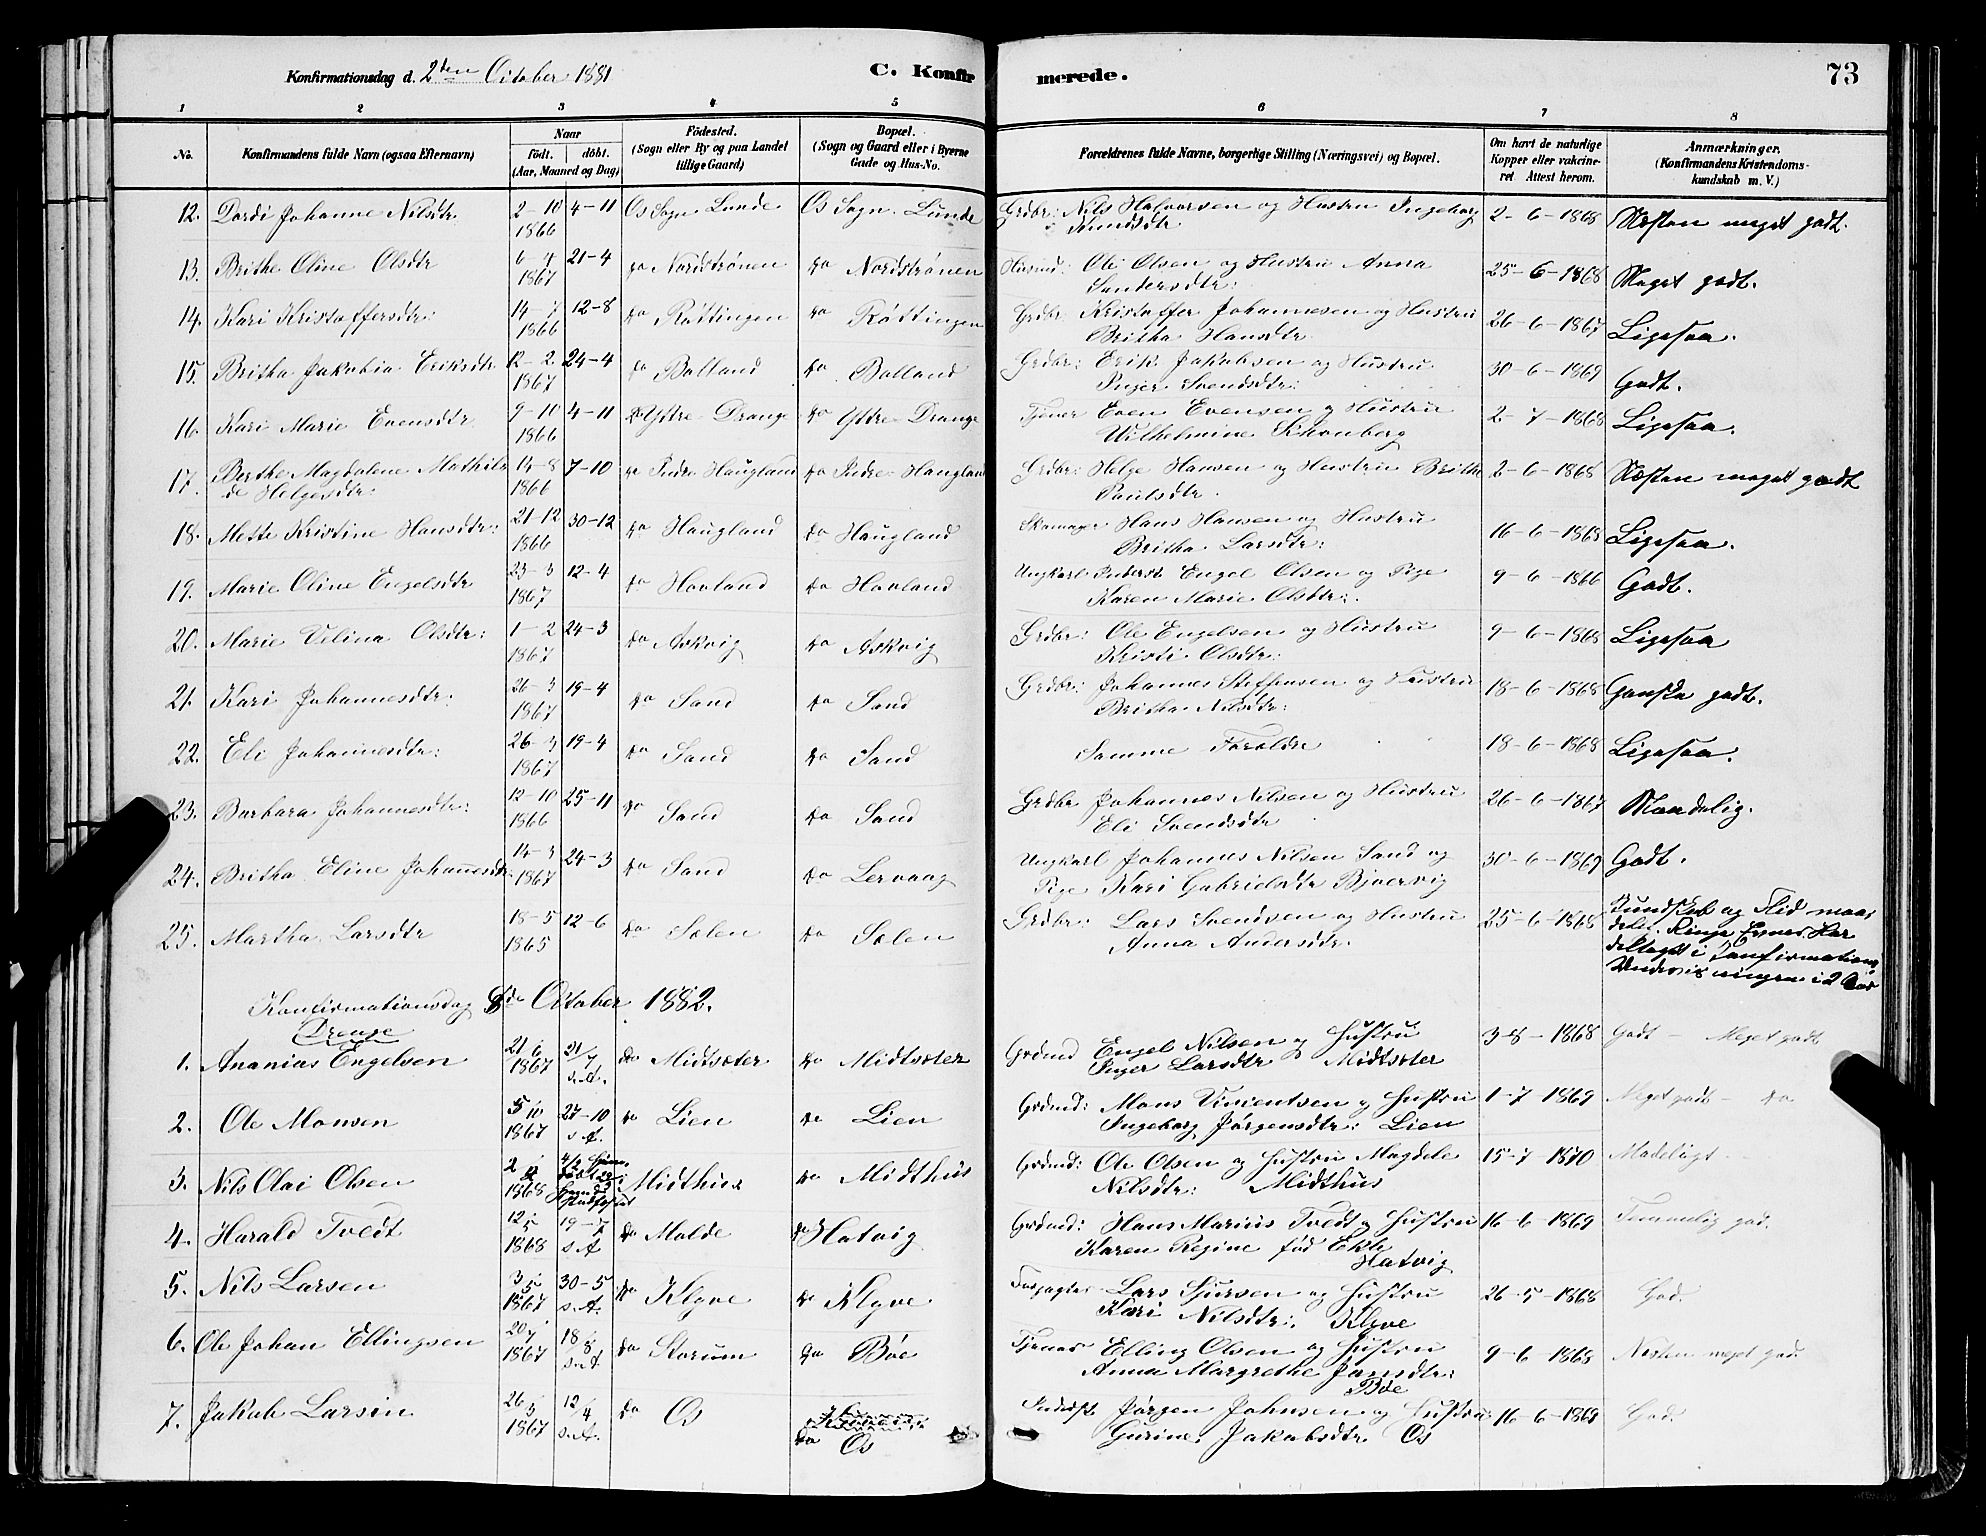 Konfirmationsdag d. 2den October 1881 C. Konfirmerede. 73
1 2 3 4 5 6 7 8
No. Konfirmandens fulde Navn (ogsaa Efternavn) Naar født. døbt. (Aar, Maaned og Dag) Födested. (Sogn eller By og paa Landet tillige Gaard) Bopæl. (Sogn og Gaard eller i Byerne Gade og Hus-No. Forældrenes fulde Navne, borgerlige Stilling (Næringsvei) og Bopæl. Om havt de naturlige Kopper eller vakcineret Attest herom. Anmærkninger. (Konfirmandens Kristendomskundskab m. V.)
12. Dordi Johanne Nilsdtr 2-10 1866 4-11 Os Sogn Lunde Os Sogn. Lunde Grdbr: Nils Halvorsen og Hustru Ingeborg Knudsdtr 2-6-1868 Næsten meget godt.
13. Brithe Oline Olsdtr 6-4 1867 21-4 Do Nordstrønen Do Nordstrønen Husmd: Ole Olsen og Hustru Anna Sandersdtr: 25-6-1868 Meget godt.
14. Kari Kristoffersdtr: 14-7 1866 12-8 Do Røttingen Do Røttingen Grdbr Kristoffer Johannesen og Hustru Britha Hansdtr 26-6-1867 Ligesaa.
15. Britha Jakobia Eriksdtr 12-2 1867 24-4 Do Bolland Do Bolland Grdbr: Erik Jakobsen og Hustru Inger Svendsdtr: 30-6-1869 Godt.
16. Kari Marie Evensdtr 9-10 1866 4-11 Do Ystre Drange Do Ystre Drange Tjener Even Evensen og Hustru Wilhelmine Schonberg 2-7-1868 Ligesaa.
17. Berthe Magdalene Mathilde Helgesdtr: 14-8 1866 7-10 Do Indre Haugland Do Indre Haugland Grdbr: Helge Hansen og Hustru Brithe Paulsdtr. 2-6-1868 Næsten meget godt
18. Mette Kristine Hansdtr: 21-12 1866 30-12 Do Haugland Do Haugland Skomager Hans Hansen og Hustru Britha Larsdtr: 16-6-1868 Ligesaa.
19. Marie Oline Engelsdtr 23-3 1867 12-4 Do Hovland Do Hovland Ungkarl Inderst Engel Olsen og Pige Karen Marie Olsdtr: 9-6-1866 Godt.
20. Marie Velina Olsdtr: 1-2 1867 24-3 Do Askvig Do Askvig Grdbr: Ole Engelsen og Hustru Kristi Olsdtr: 9-6-1868 Ligesaa
21. Kari Johannesdtr: 26-3 1867 19-4 Do Sand Do Sand Grdbr: Johannes Steffensen og Hustru Britha Nilsdtr: 18-6-1868 Ganske godt.
22. Eli Johannesdtr: 26-3 1867 19-4 Do Sand Do Sand Samme Forældre 18-6-1868 Ligesaa.
23. Barbara Johannesdtr: 12-10 1866 25-11 Do Sand Do Sand Grdbr Johannes Nilsen og Hustru Eli Svendsdtr 26-6-1867 Maadelig.
24. Britha Eline Johannesdtr: 14-3 1867 24-3 Do Sand Do Lervaag Ungkarl Johannes Nilsen Sand og Pige Kari Gabrielsdtr Bjorvig 30-6-1869 Godt.
25. Martha Larsdtr 18-5 1865 12-6 Do Sælen Do Sælen Grdbr: Lars Svendsen og Hustru Anna Andersdtr: 25-6-1868 Kundskab og Flid maadelig. Ringe Evner. Har deltaget i Konfirmations Undervisningen i 2 Aar
Konfirmationsdag 8de October 1882.
Drenge
1. Ananias Engelsen 21/6 1867 21/7 s.A. Do Midtsæter Do Midtsæter Grdmd Engel Nilsen og Hustru Inger Larsdtr Midtsæter 3-8-1868 Godt – Meget godt
2. Ole Monsen 5/10 1867 27-10 s.A. Do Lien Do Lien Grdmd: Mons Vincentsen og Hustru Ingeborg Jørgensdtr: Lien 1-7-1869 Meget godt – Do
3. Nils Olai Olsen 2/2 1868 4/2 Hjemmedøbt Midthus Do Midthus Grdmd: Ole Olsen og Hustru Magdele Nilsdtr: Midthus 15-7-1870 Madeligt
4. Harald Tvedt 12/5 1868 19-7 s.A Do Molde Do Hatvig Grdmd: Hans Marius Tvedt og Hustru Karen Regine fød Ekle Hatvig 16-6-1869 Temmelig god.
5. Nils Larsen 3/5 1867 30-5 s.A. Do Klyve Do Klyve Forpagter Lars Sjursen og Hustru Kari Nilsdtr: Klyve 26-5-1868 God.
6. Ole Johan Ellingsen 20/7 1867 18/8 s.A Do Storum Do Bøe Tjener Elling Olsen og Hustru Anna Margrethe Jansdtr: Bøe 9-6-1868 Næsten meget god.
7. Jakob Larsen 26/3 1867 12/4 s.A. Do Os Do Os Inderst Jørgen Johnsen og Hustru Gurine Jakobsdtr Os 16-6-1869 God.